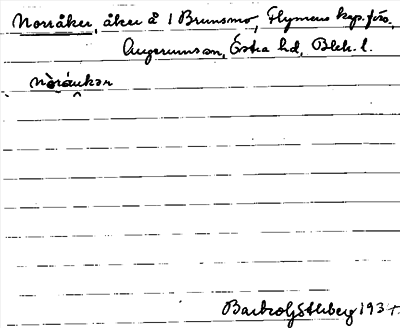 Norråker, åker å 1 Brunsmo, Flymens kap. förs.
Augerums sn, Östra hd, Blek. l.
nòráukər
Barbro 1937.